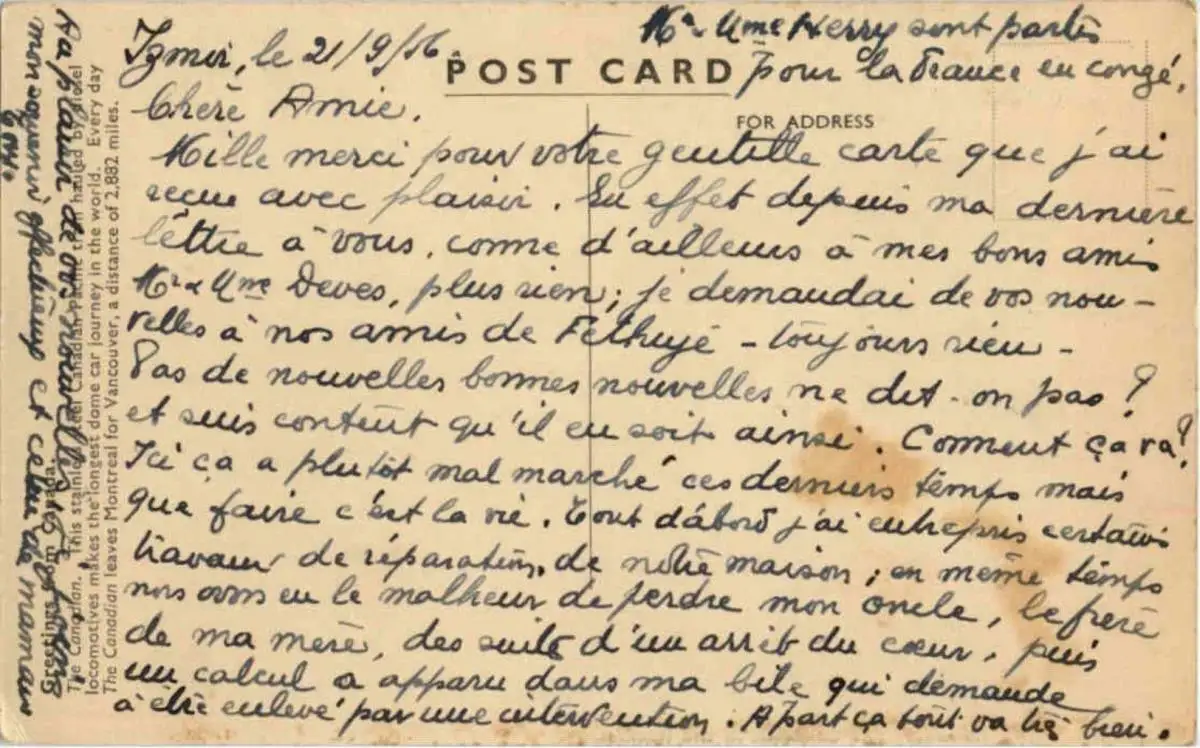 Izmir, le 21/9/56
Mr & Mme Herry sont partis
pour la France en congé.
POST CARD
FOR ADDRESS
Chère Amie.
Mille merci pour votre gentille carte que j'ai
recue avec plaisir. En effet depuis ma dernière
lettre à vous, comme d'ailleurs à mes bons amis
Mr & Mme Deves, plus rien; je demandai de vos nou-
velles à nos amis de Fethiyé - toujours rien -
Pas de nouvelles bonnes nouvelles ne dit-on pas?
et suis content qu'il en soit ainsi. Comment ça va?
Ici ça a plutôt mal marché ces derniers temps mais
que faire c'est la vie. Tout d'abord j'ai entrepris certains
travaux de réparation, de notre maison; en même temps
nous avons eu le malheur de perdre mon oncle, le frère
de ma mère, des suite d'un arrêt du cœur, puis
un calcul a apparu dans ma bile qui demande
à être enlevé par une intervention. A part ça tout va très bien.
Au plaisir de vos nouvelles
mon souvenir affectueux et celui de maman
Greetings from Canada.
The Canadian. This stainless steel Canadian Pacific train hauled by diesel
locomotives makes the longest dome car journey in the world. Every day
The Canadian leaves Montreal for Vancouver, a distance of 2,882 miles.